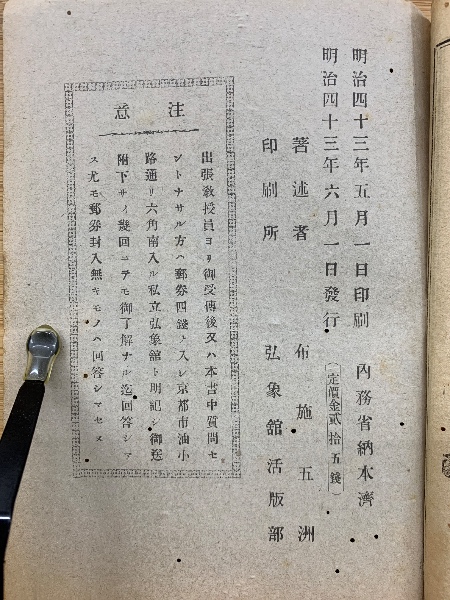 明治四十三年五月一日印刷 內務省納本濟
明治四十三年六月一日發行 (定價金貳拾五錢)
著述者 布施五洲
印刷所 弘象舘活版部
注意
出張敎授員ヨリ御受傳後又ハ本書中質問セ
ントナサル方ハ郵劵四錢ヲ入レ京都市油小
路通リ六角南入ル私立弘象舘ト明記シ御送
附下サノ幾回ニテモ御了解ナル迄回答シマ
ス尤モ郵劵封入無キモノハ回答シマセヌ